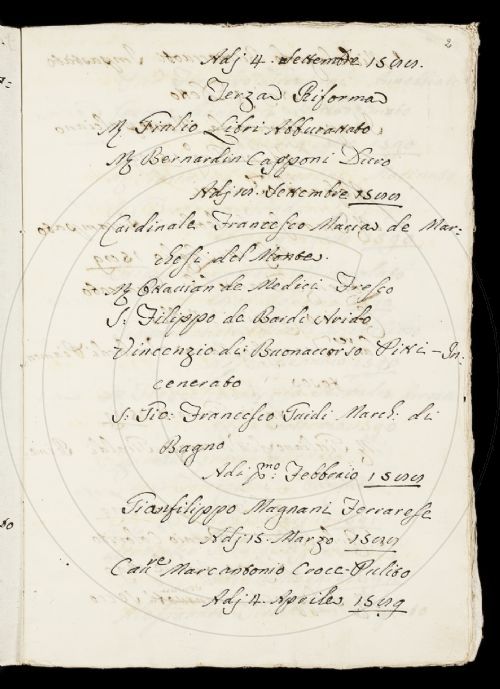 2
Adj 4. Settembre 1589.
Terza Riforma
Mr Giulio Libri Abburattato
Mr Bernardin Capponi Duro
Adj Settembre 1589
Cardinale Francesco Maria de Mar:
chesi del Monte.
Mr Ottavian de Medici Fresco
S: Filippo de Bardi Arido
Vincenzio di Buonaccorso Pitti - In:
cenerato
S: Gio: Francesco Guidi March: di
Bagno
Adj pmo: Febbraio 1589
Gianfilippo Magnani Ferrarese
Adj 15. Marzo 1589
Cavre Marcantonio Croce-Pulito
Adj 4. Aprile 1589